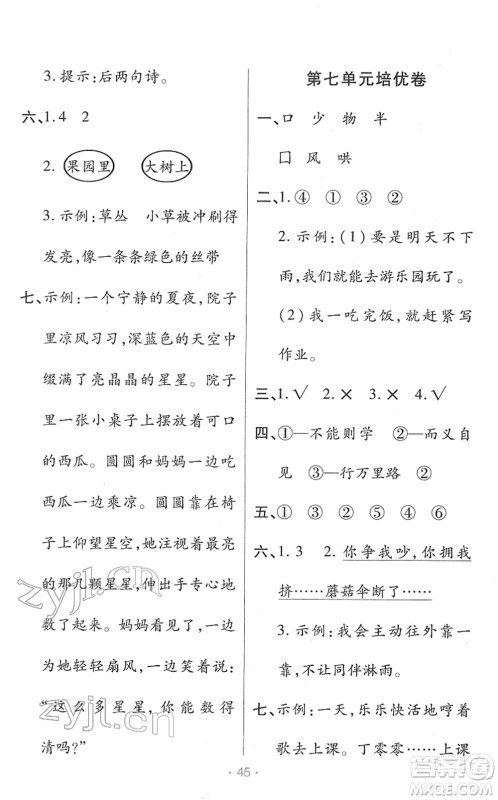 3. 提示:后两句诗。
六、1.4 2
2. 果园里 大树上
3. 示例:草丛 小草被冲刷得
发亮,像一条条绿色的丝带
七、示例:一个宁静的夏夜,院子
里凉风习习,深蓝色的天空中
缀满了亮晶晶的星星。院子
里一张小桌子上摆放着可口
的西瓜。圆圆和妈妈一边吃
西瓜一边乘凉。圆圆靠在椅
子上仰望星空,她对着最亮
的那几颗星星,伸出手专心地
数了起来。妈妈一边
为她轻轻扇风,一边笑着说:
“这么多星星,你能数得
清吗?”
第七单元培优卷
一、口 少 物 半
囗 风 哄
二、1. ④ ① ③ ②
2. 示例:(1)要是明天不下
雨,我们就能去游乐园玩了。
(2)我一吃完饭,就赶紧写
作业。
三、1.√ 2.× 3.× 4.√
四、①—不能则学 ②—而义自
见 ③—行万里路 ②
五、① ③ ④ ② ⑤ ⑥
六、1.3 2. 你争我吵,你拥我
挤……蘑菇伞断了……
3. 示例:我会主动往外靠一
靠,不让同伴淋雨。
七、示例:一天,乐乐快活地哼着
歌去上课。丁零零……上课
· 45 ·
zyjl.cn
zyjl.cn
答案圈
MXQE.COM